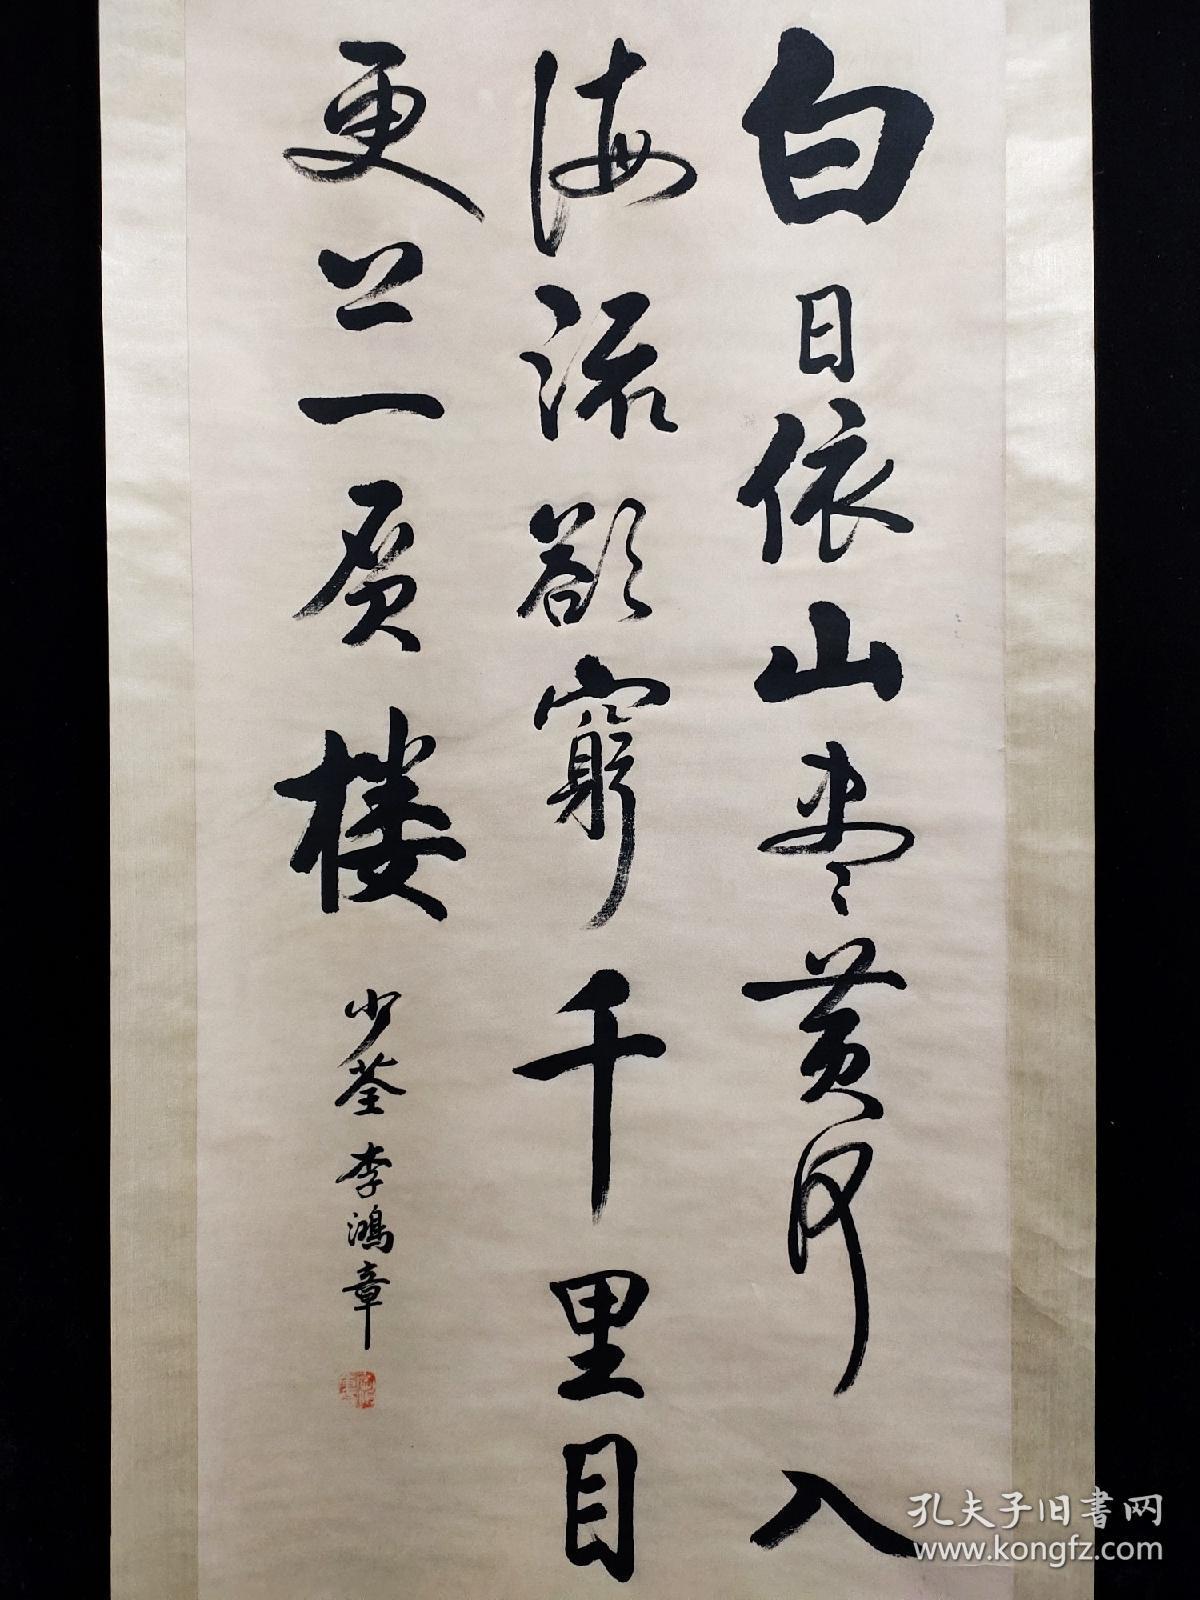 白日依山尽黄河入
海流欲穷千里目
更上一层楼
少荃李鸿章
孔夫子旧书网
www.kongfz.com